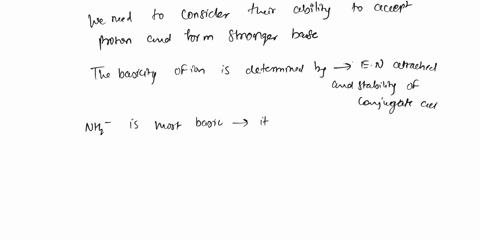 We need to consider their ability to accept
proton and form stronger base
The basicity of ion is determined by → E.N attached
and stability of
conjugate
NH₂⁻ is most basic → it